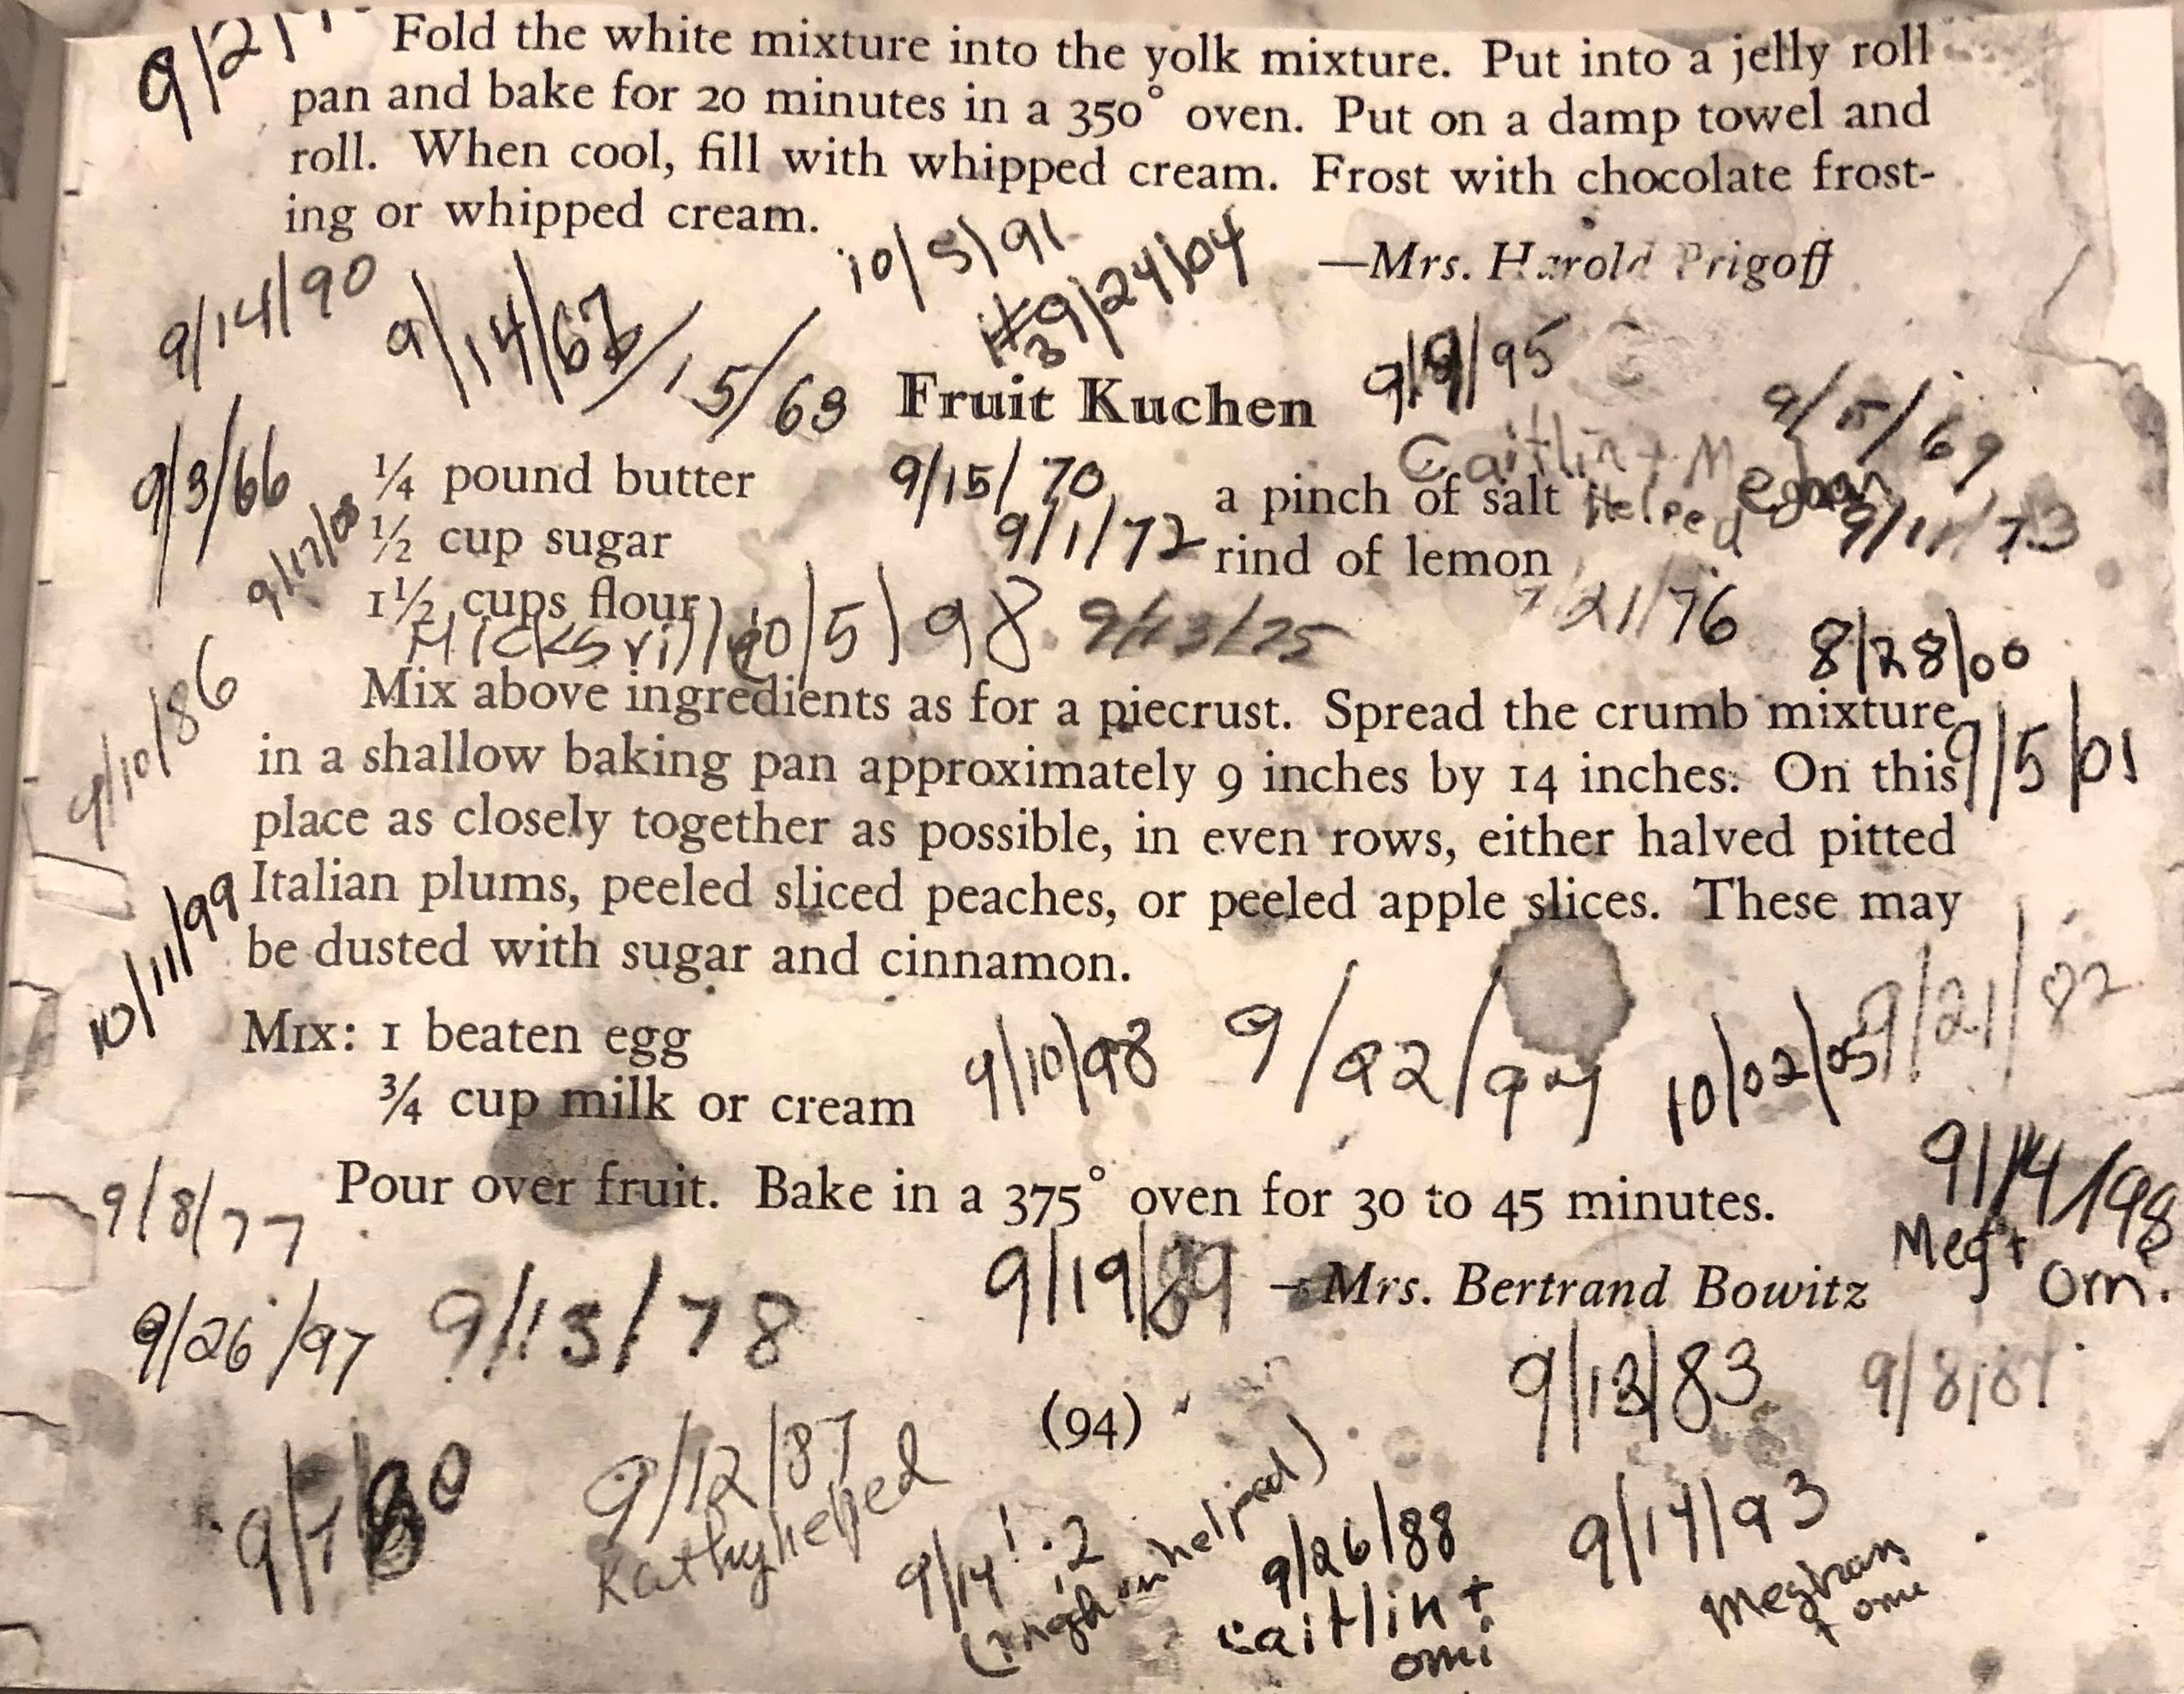 9/21/
Fold the white mixture into the yolk mixture. Put into a jelly roll
pan and bake for 20 minutes in a 350° oven. Put on a damp towel and
roll. When cool, fill with whipped cream. Frost with chocolate frost-
ing or whipped cream.
10/5/91
9/24/04
—Mrs. Harold Prigoff
9/14/90
9/14/67
15/63
Fruit Kuchen
9/9/95
9/5/69
Caitlin + Meghan
Helped
9/3/66
¼ pound butter
9/15/70
a pinch of salt
9/11/73
9/17/08
½ cup sugar
9/1/72
rind of lemon
1½ cups flour
Hicksville
10/5/98
9/13/75
21/76
8/28/00
9/10/86
Mix above ingredients as for a piecrust. Spread the crumb mixture
in a shallow baking pan approximately 9 inches by 14 inches. On this
9/5/01
place as closely together as possible, in even rows, either halved pitted
Italian plums, peeled sliced peaches, or peeled apple slices. These may
10/11/99
be dusted with sugar and cinnamon.
Mix: 1 beaten egg
9/10/98
9/22/94
10/02/05
9/21/82
¾ cup milk or cream
9/14/98
Meg +
Omi
9/8/77
Pour over fruit. Bake in a 375° oven for 30 to 45 minutes.
9/19/89
—Mrs. Bertrand Bowitz
9/26/97
9/13/78
9/13/83
9/8/81
(94)
9/7/80
9/12/87
Kathy helped
9/14
helped)
9/26/88
Caitlin +
omi
9/14/93
Meghan
+ omi